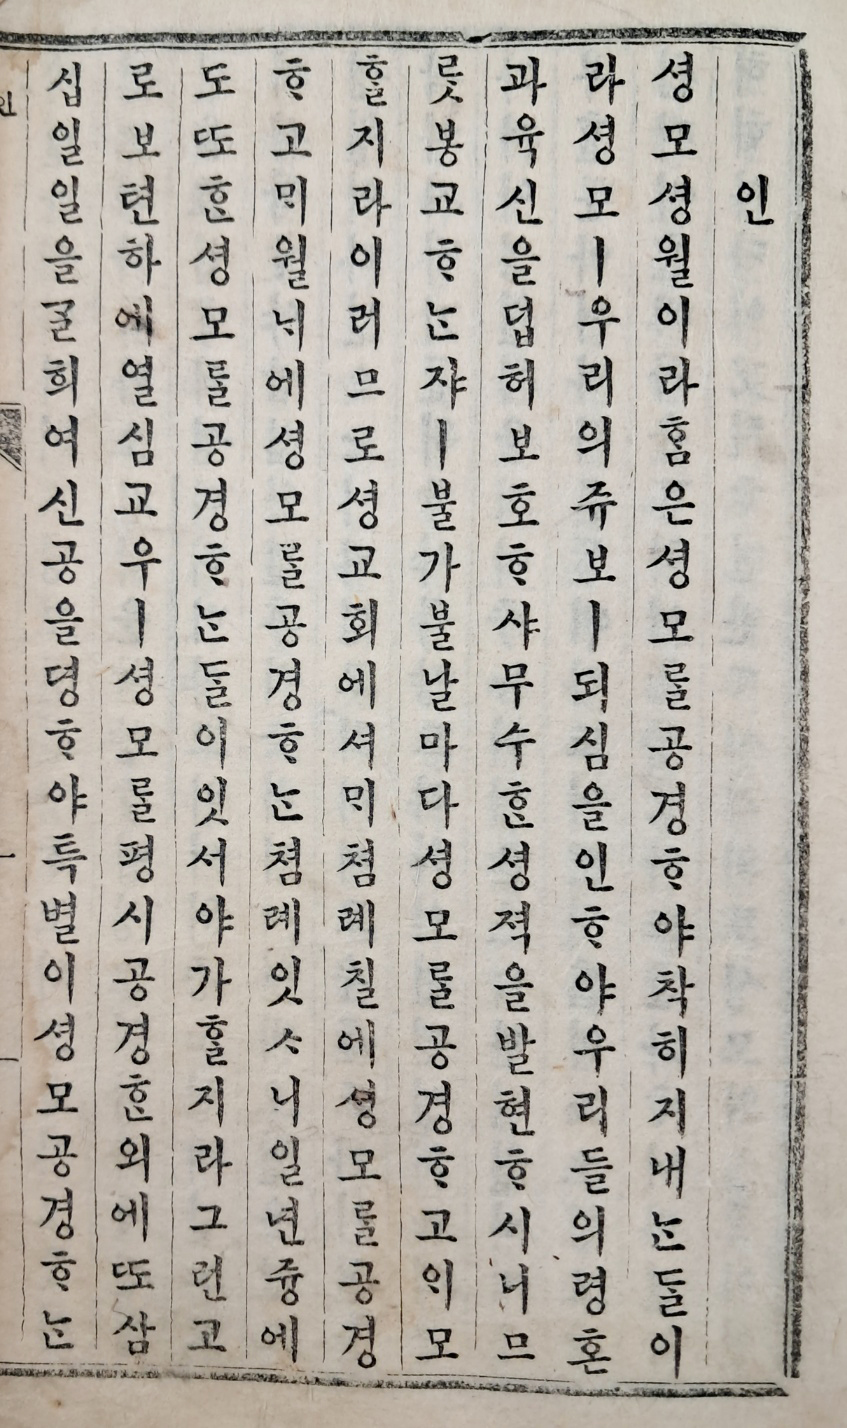 인
셩모셩월이라홈은셩모ᄅᆞᆯ공경ᄒᆞ야착히지내ᄂᆞᆫᄃᆞᆯ이
라셩모ㅣ우리의쥬보ㅣ되심을인ᄒᆞ야우리들의령혼
과육신을덥허보호ᄒᆞ샤무수ᄒᆞᆫ셩젹을발현ᄒᆞ시니므
릇봉교ᄒᆞᄂᆞᆫ쟈ㅣ불가불날마다셩모ᄅᆞᆯ공경ᄒᆞ고ᄋᆡ모
ᄒᆞᆯ지라이러므로셩교회에셔ᄆᆡ쳠례칠에셩모ᄅᆞᆯ공경
ᄒᆞ고ᄆᆡ월ᄂᆡ에셩모ᄅᆞᆯ공경ᄒᆞᄂᆞᆫ쳠례잇ᄉᆞ니일년즁에
도ᄯᅩᄒᆞᆫ셩모ᄅᆞᆯ공경ᄒᆞᄂᆞᆫᄃᆞᆯ이잇서야가ᄒᆞᆯ지라그런고
로보텬하에열심교우ㅣ셩모ᄅᆞᆯ평시공경ᄒᆞᆫ외에ᄯᅩ삼
십일일을ᄀᆞᆯ희여신공을뎡ᄒᆞ야특별이셩모공경ᄒᆞᄂᆞᆫ